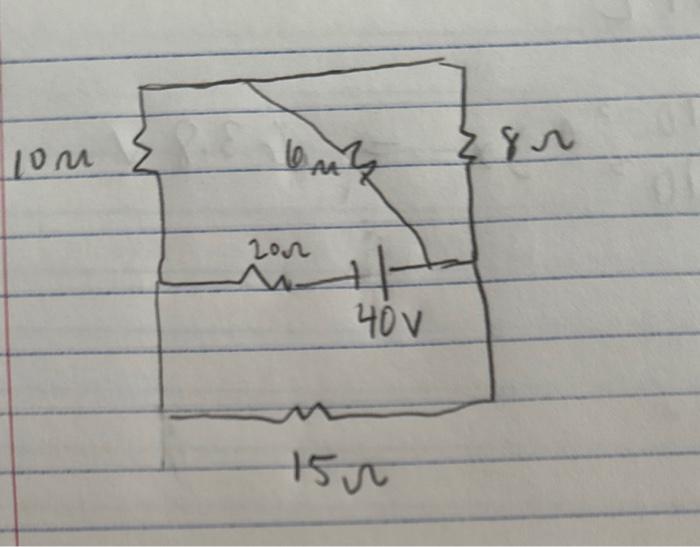 10Ω
6Ω
8Ω
20Ω
40V
15Ω